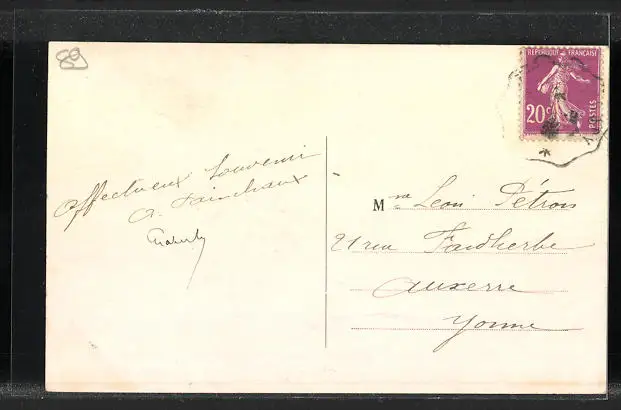 80
REPUBLIQUE FRANÇAISE
20c
POSTES
Affectueux souvenir
Mme Léon Pétron
21 rue Faidherbe
Auxerre
Yonne